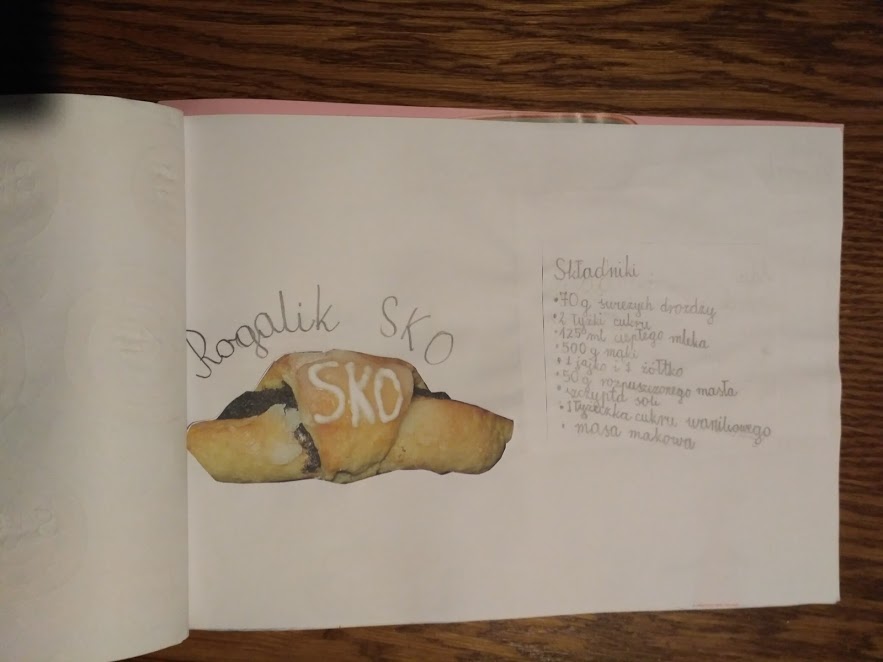 Rogalik SKO
SKO
Składniki
• 70 g świeżych drożdży
• 2 łyżki cukru
• 125 ml ciepłego mleka
• 500 g mąki
• 1 jajko i 1 żółtko
• 50 g rozpuszczonego masła
• szczypta soli
• 1 łyżeczka cukru waniliowego
• masa makowa